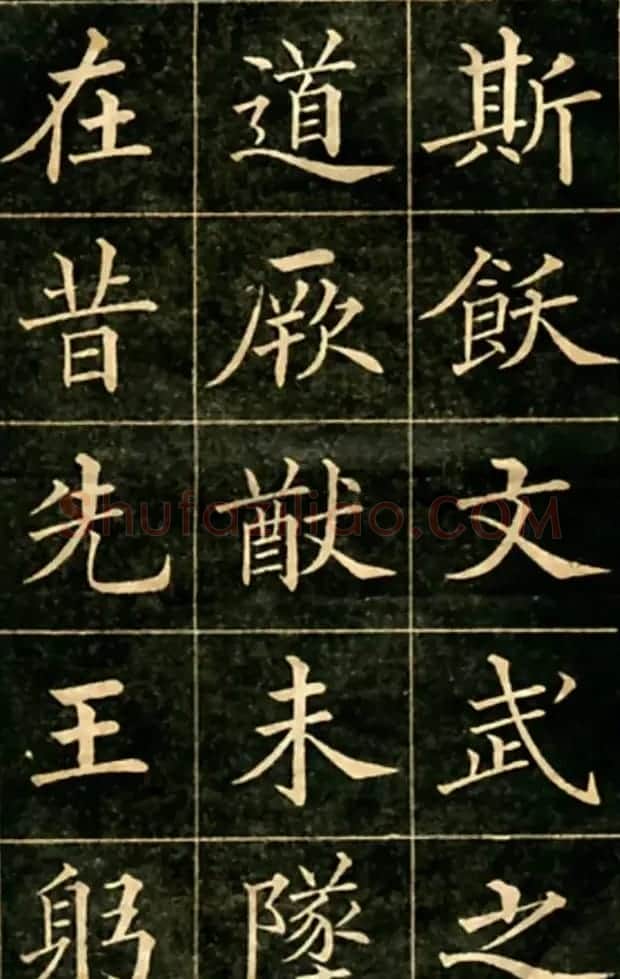 斯飫文武之
道厥猷未墜
在昔先王躬
Shufaziliao.COM